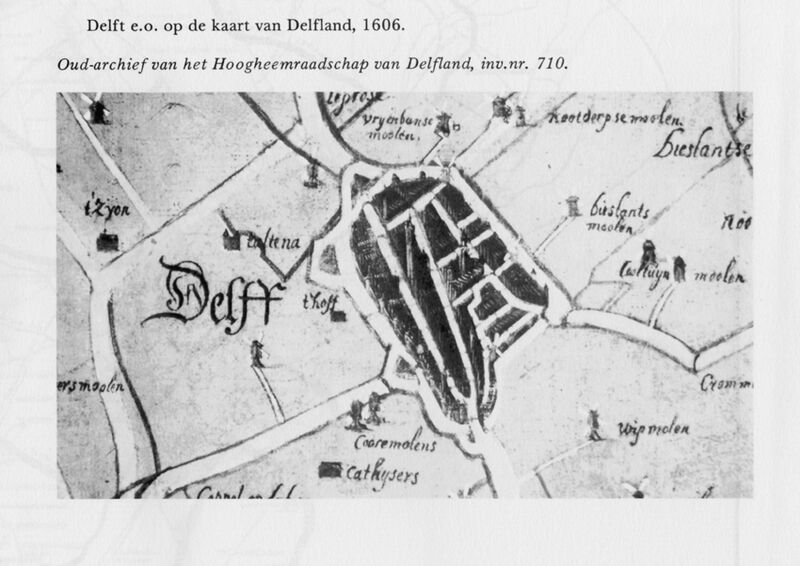 Delft e.o. op de kaart van Delfland, 1606.
Oud-archief van het Hoogheemraadschap van Delfland, inv.nr. 710.
leprose
vryenbanse
moolen.
nootdorpse moolen.
bieslantse
t'Zyon
bieslants
moolen
taltena
Noo
Delff
t'hoff
moolen
ersmoolen
Cromm
Cooremolens
wipmolen
Cathysers